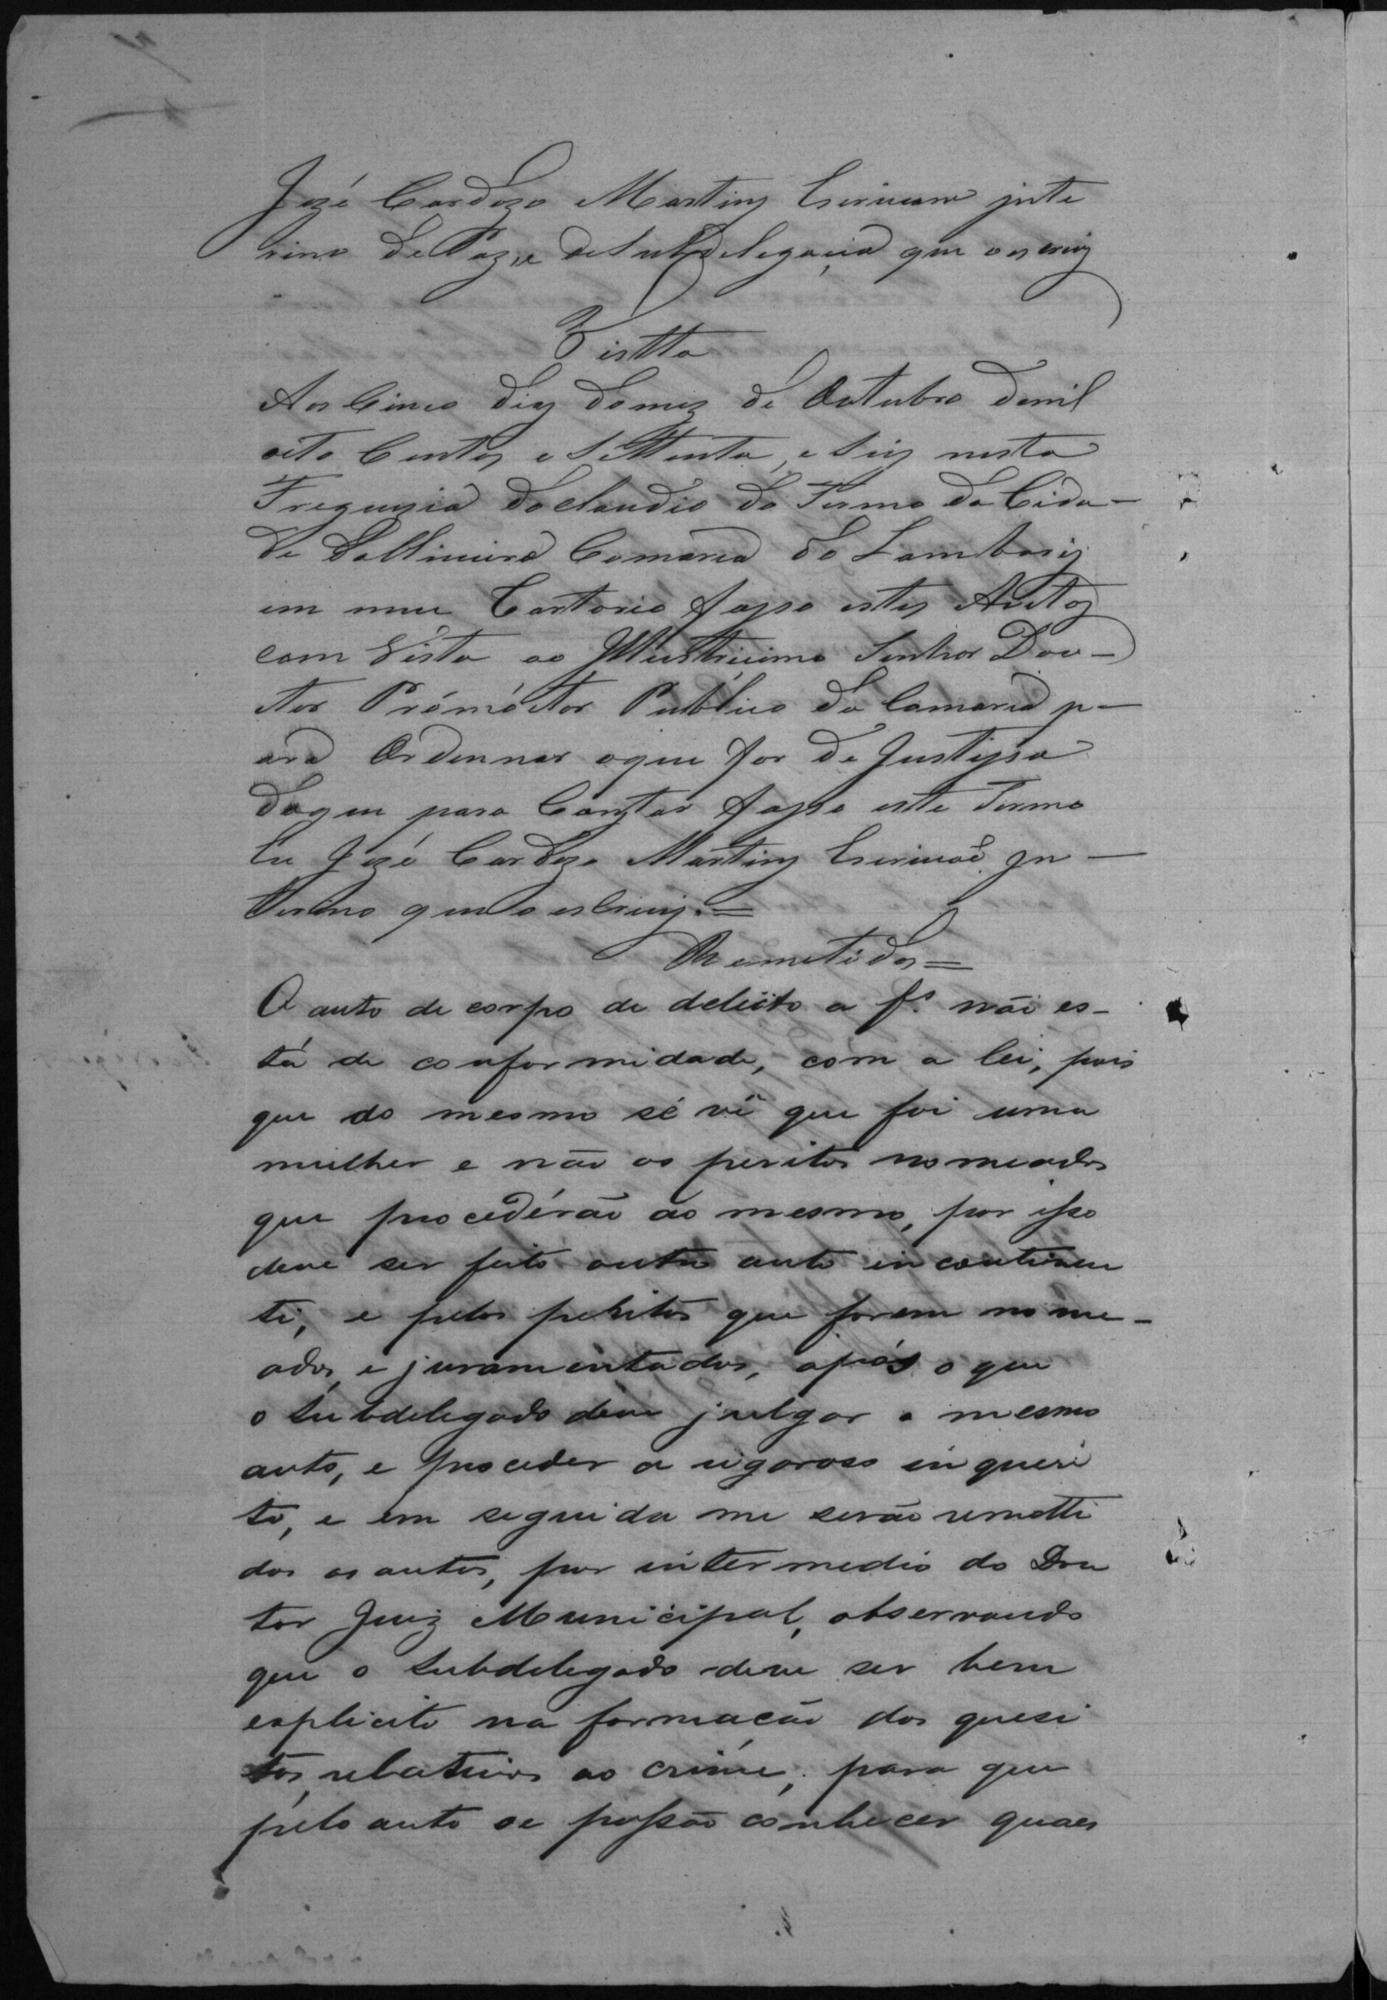 Jozé Cardozo Martins Escrivam jnte
rino de Paz, e de Subdelegacia que o escrivy
Vistta
Aos Cinco dias do mez de Outubro de mil
oito Centos e Settenta, e Seis nesta
Freguezia do Claudio do Termo da Cida-
de Da Oliveira Comarca do Lambary
em meu Cartorio fasso estes Autos
com Vista ao Illustricimo Senhor Dou-
tor Prómótor Publico da Comarca p-
ara Ordennar o que for de Justissa
do que para Constar fasso este Termo
Eu Jozé Cardozo Martins Escrivaõ jn-
terino que o escrivy.=
Remetidos=
O auto de corpo de delicto a f.ˢ não es-
tá de conformidade, com a lei, pois
que do mesmo sé vê que foi uma
mulher e não os peritos nomeados
que procedérão ao mesmo, por isso
deve ser feito outro auto incontinen
ti, e pelos peritos que forem nome-
ados, e juramentados, após o que
o Subdelegado deve julgar o mesmo
auto, e proceder a rigoroso inqueri
to, e em seguida me serão remetti
dos os autos, por intermedio do Dou
tor Juiz Municipal, observando
que o Subdelegado deve ser bem
explicito na formação dos quesi
tos, relativos ao crime, para que
pelo auto se possão conhecer quaes